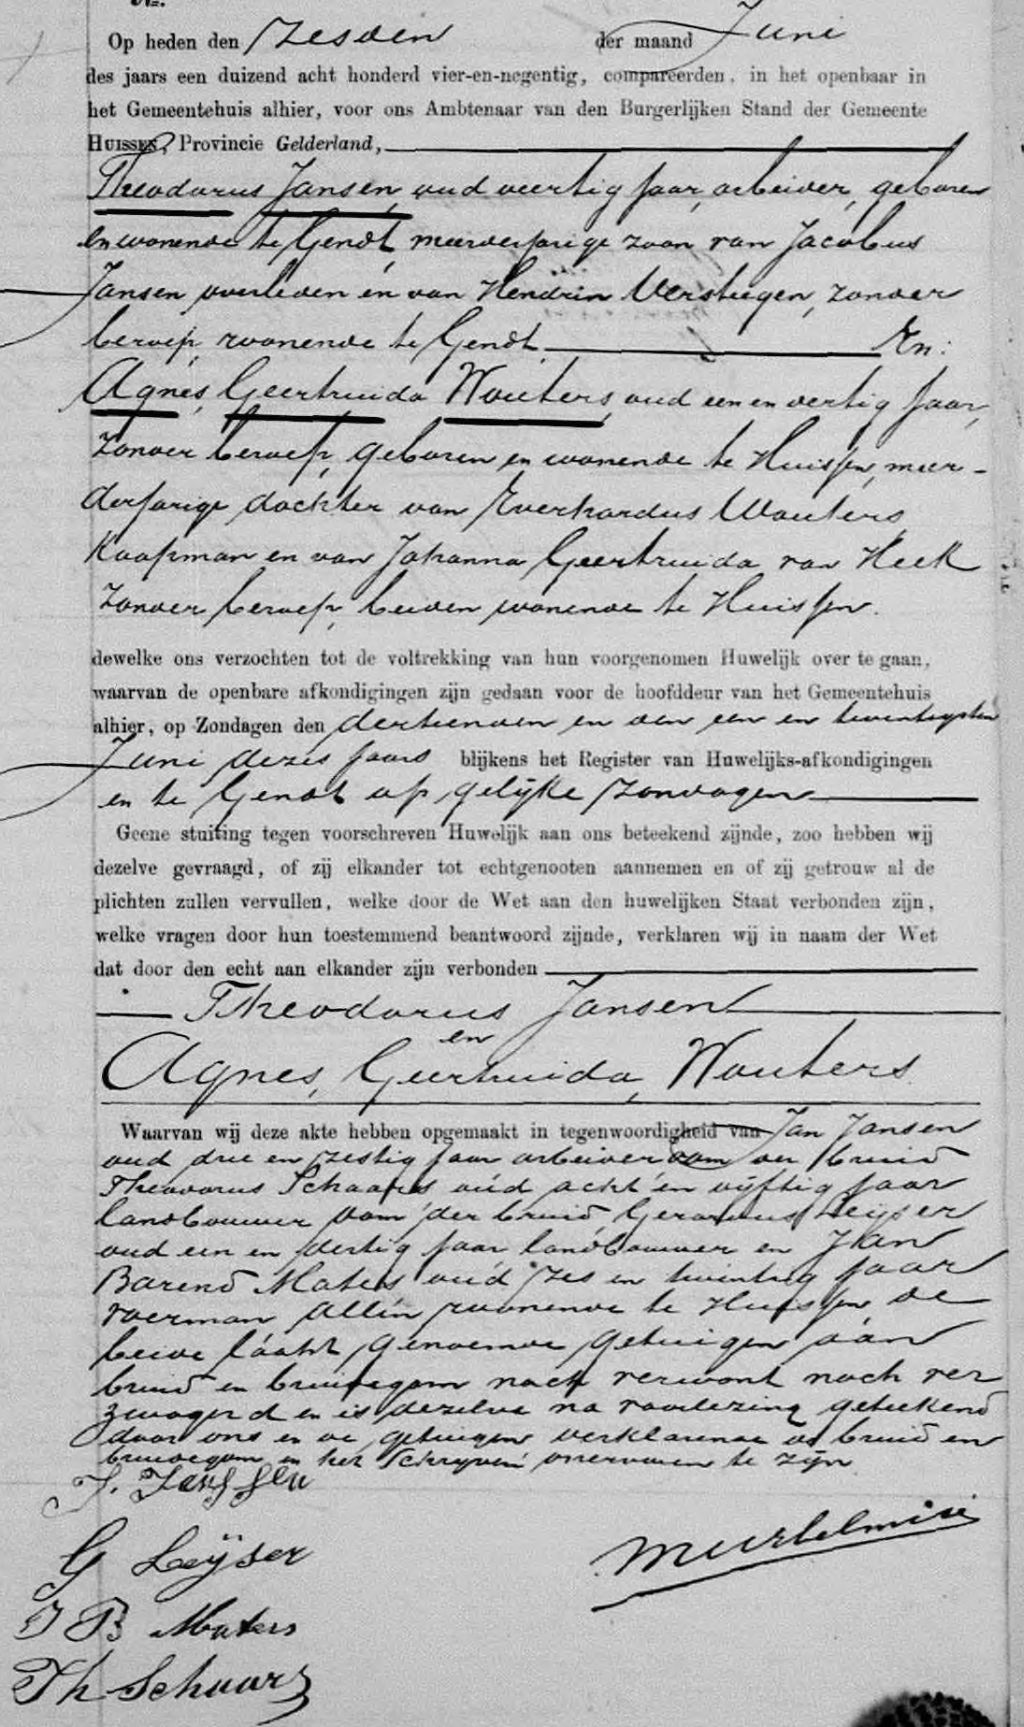 No.
Op heden den Zesden der maand Juni
des jaars een duizend acht honderd vier-en-negentig, compareerden, in het openbaar in
het Gemeentehuis alhier, voor ons Ambtenaar van den Burgerlijken Stand der Gemeente
HUISSEN, Provincie Gelderland,
Theodorus Jansen, oud veertig jaar, arbeider, geboren
en wonende te Gendt, meerderjarige zoon van Jacobus
Jansen overleden en van Hendrin Verstegen, zonder
beroep, wonende te Gendt En:
Agnes, Geertruida Wouters, oud een en dertig jaar,
zonder beroep, geboren en wonende te Huissen, meer-
derjarige dochter van Everhardus Wouters
Koopman en van Johanna Geertruida van Heek
zonder beroep, beiden wonende te Huissen.
dewelke ons verzochten tot de voltrekking van hun voorgenomen Huwelijk over te gaan,
waarvan de openbare afkondigingen zijn gedaan voor de hoofddeur van het Gemeentehuis
alhier, op Zondagen den dertienden en den een en twintigsten
Juni dezes jaars blijkens het Register van Huwelijks-afkondigingen
en te Gendt op gelijke Zondagen
Geene stuiting tegen voorschreven Huwelijk aan ons beteekend zijnde, zoo hebben wij
dezelve gevraagd, of zij elkander tot echtgenooten aannemen en of zij getrouw al de
plichten zullen vervullen, welke door de Wet aan den huwelijken Staat verbonden zijn,
welke vragen door hun toestemmend beantwoord zijnde, verklaren wij in naam der Wet
dat door den echt aan elkander zijn verbonden
Theodorus Jansen
en
Agnes, Geertruida, Wouters
Waarvan wij deze akte hebben opgemaakt in tegenwoordigheid van Jan Jansen
oud drie en zestig jaar arbeider oom der bruid
Theodorus Schaars oud acht en vijftig jaar
landbouwer oom der bruid, Gerardus Leijser
oud een en dertig jaar landbouwer en Jan
Barend Maters oud zes en twintig jaar
voerman allen wonende te Huissen de
beide laatst genoemde getuigen aan
bruid en bruidegom noch verwant noch ver
zwagerd en is dezelve na voorlezing geteekend
door ons en de getuigen verklarende de bruid en
bruidegom in het schrijven onervaren te zijn
J. Janssen
G Leijser
J B Maters
Th Schaars